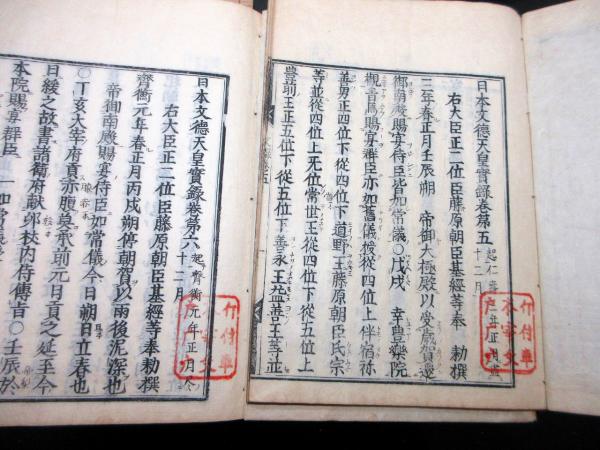 日本文德天皇實錄卷第五 起仁壽三年正月盡十二月
右大臣正二位臣藤原朝臣基經等奉 勅撰
三年春正月壬辰朔 帝御大極殿以受朝賀還
御南殿賜宴侍臣皆如常儀〇戊戌 幸豊樂院
觀青馬賜宴群臣亦如舊儀授從四位上伴宿祢
善男正四位下從四位下道野王藤原朝臣氏宗
等並從四位上无位常世王從四位下從五位上
豊前王正五位下從五位下善永王益善王等並
日本文德天皇實錄卷第六 起齊衡元年正月
十二月
右大臣正二位臣藤原朝臣基經等奉 勅撰
齊衡元年春正月丙戌朔停朝賀以雨後泥深也
帝御南殿賜宴侍臣如常儀今日朝日立春也
〇丁亥大宰府貢亦腹魚承前元日貢之延至今
日緩之故書諸衛府献卯杖内侍傳旨〇壬辰於
本院賜宴群臣 如常儀